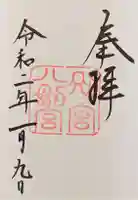 奉拝
八幡宮
令和二年一月九日